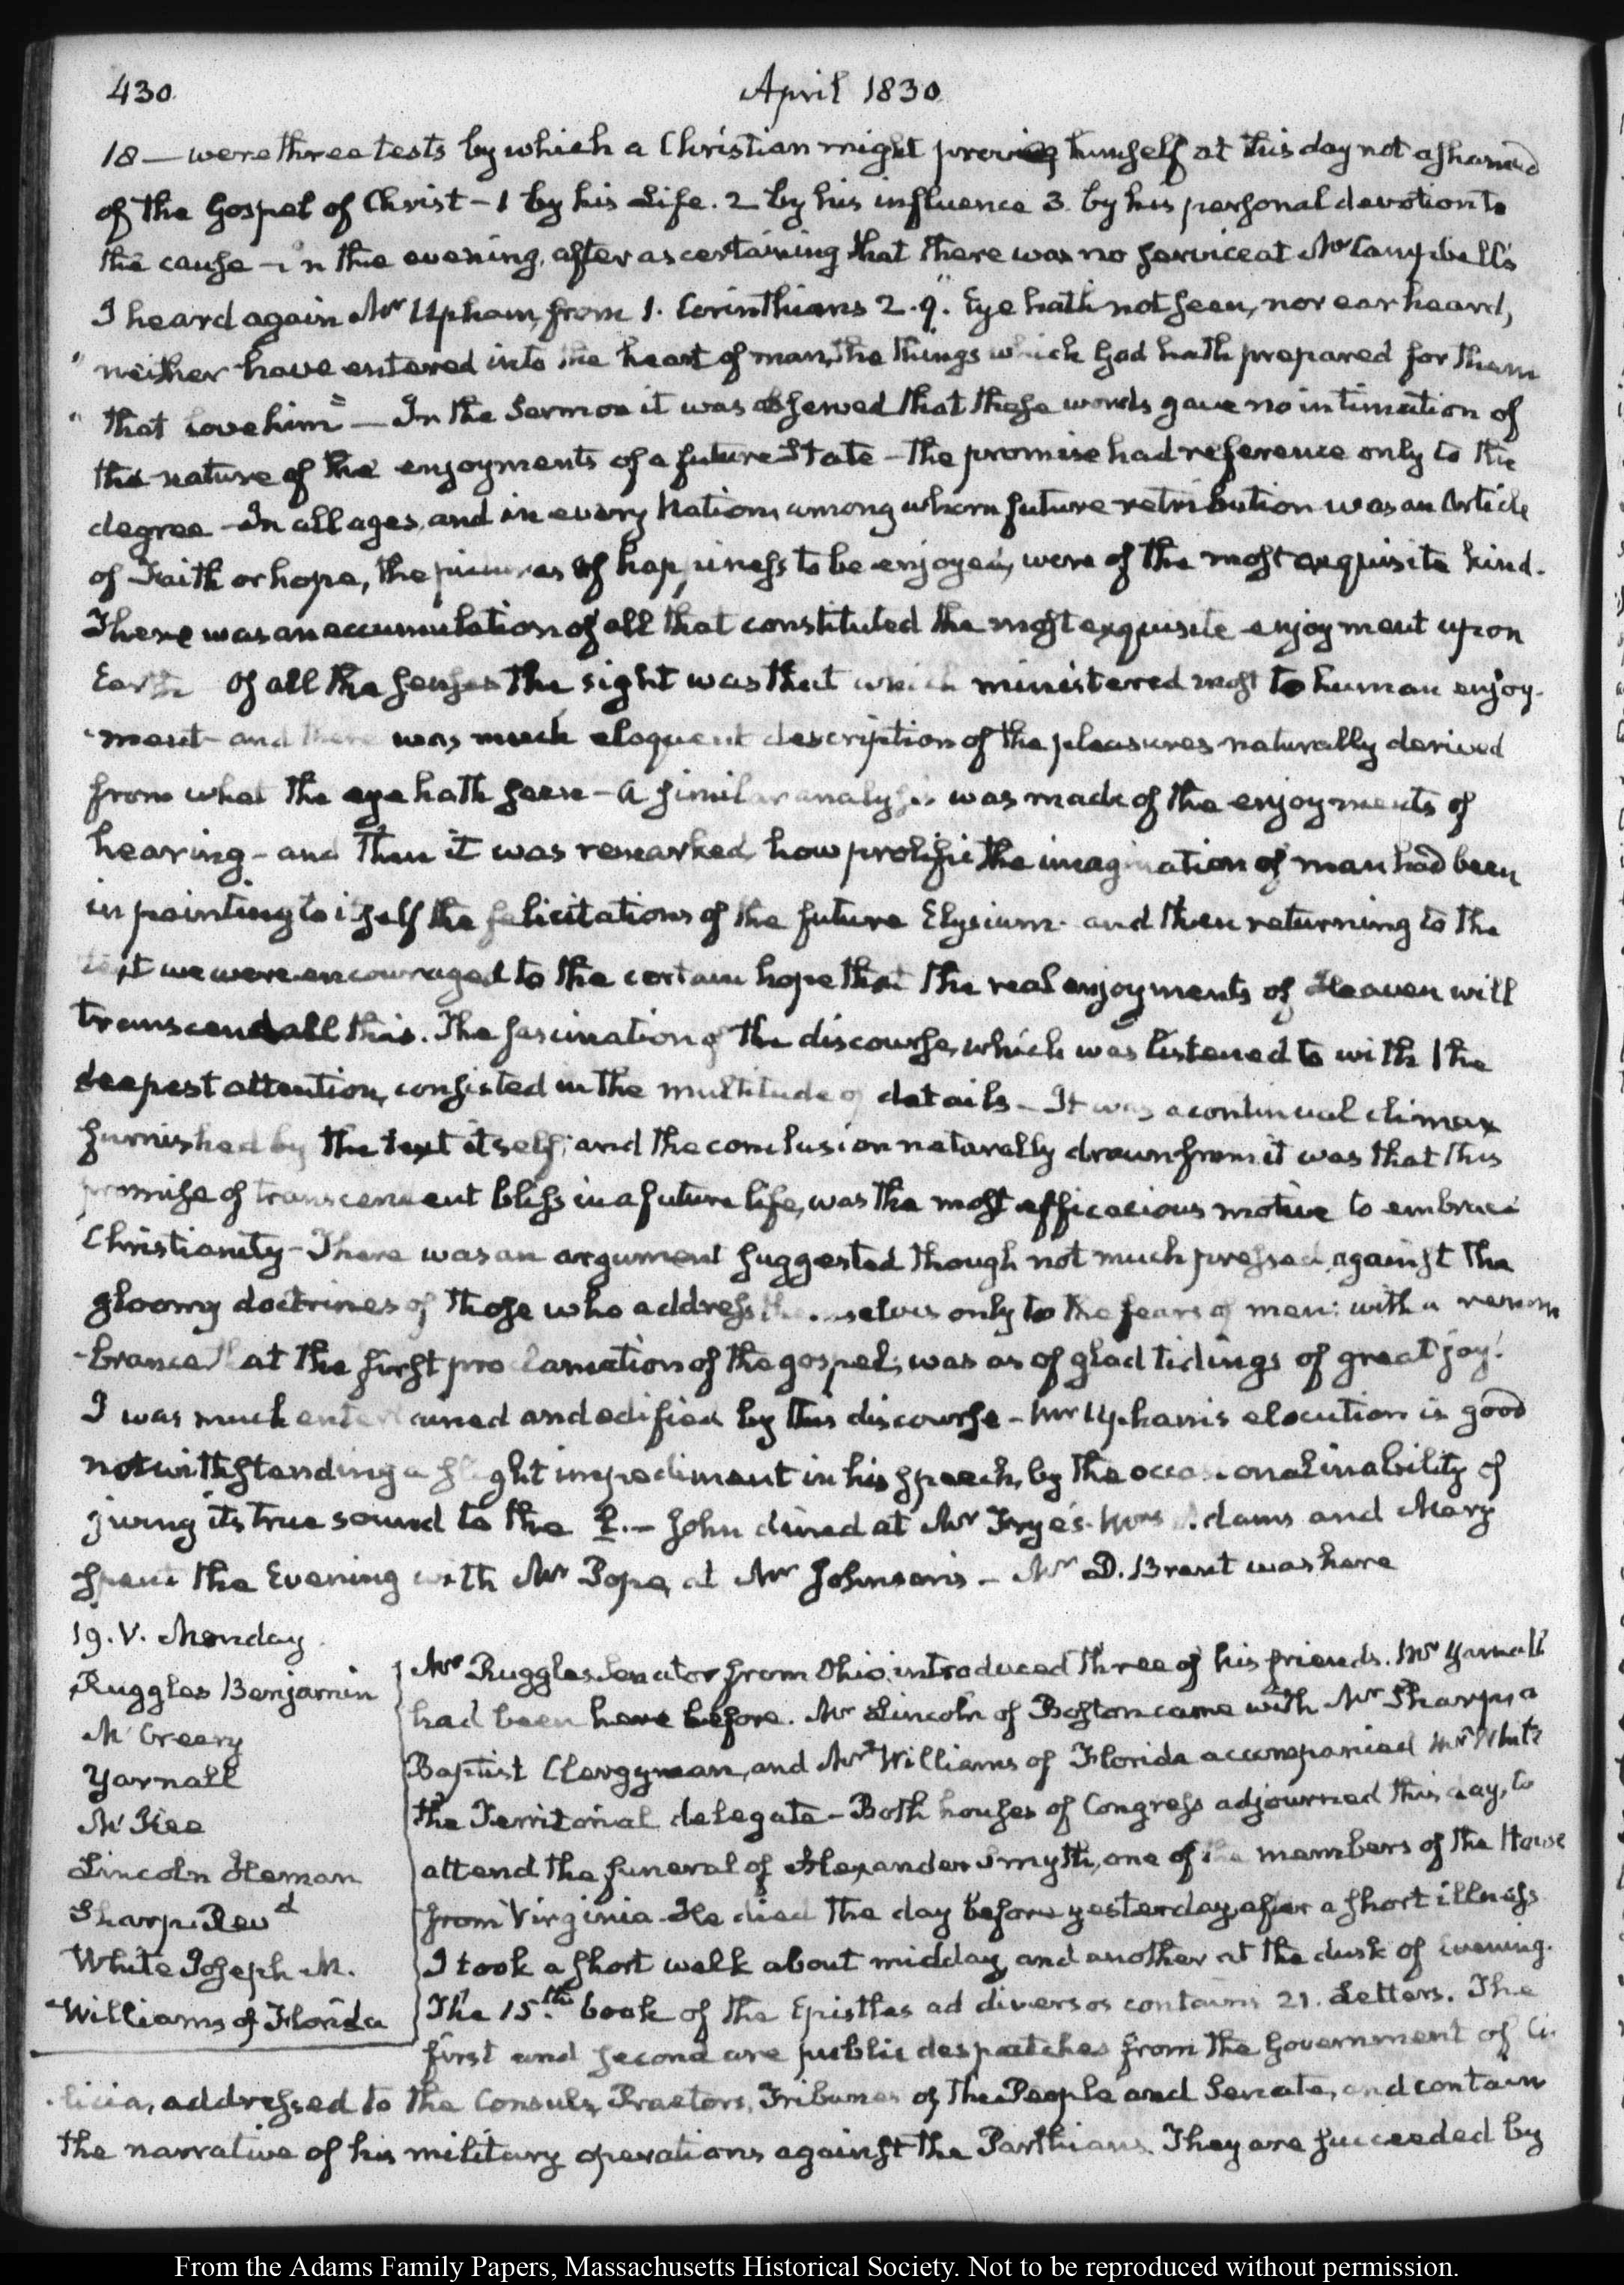 430
April 1830
18 — were three tests by which a Christian might proving himself at this day not ashamed
of the Gospel of Christ — 1 by his Life. 2 by his influence 3. by his personal devotion to
the cause — In the evening, after ascertaining that there was no service at Mr Campbell's
I heard again Mr Upham, from 1. Corinthians 2. 9. "Eye hath not seen, nor ear heard,
"neither have entered into the heart of man, the things which God hath prepared for them
"that love him" — In the Sermon it was observed that these words gave no intimation of
the nature of the enjoyments of a future State — The promise had reference only to the
degree — In all ages, and in every Nation, among whom future retribution was an Article
of Faith or hope, the pictures of happiness to be enjoyed, were of the most exquisite kind.
There was an accumulation of all that constituted the most exquisite enjoyment upon
Earth Of all the senses the sight was that which ministered most to human enjoy-
-ment and there was much eloquent description of the pleasures naturally derived
from what the eye hath seen — A similar analysis was made of the enjoyments of
hearing — and then it was remarked, how prolific the imagination of man had been
in painting to itself the felicitations of the future Elysium — and then returning to the
text we were encouraged to the certain hope that the real enjoyments of Heaven will
transcend all this. The fascination of the discourse, which was listened to with the
deepest attention, consisted in the multitude of details — It was a continual climax
furnished by the text itself; and the conclusion naturally drawn from it was that this
promise of transcendent bliss in a future life, was the most efficacious motive to embrace
Christianity — There was an argument suggested though not much pressed, against the
gloomy doctrines of those who address themselves only to the fears of men: with a remem
-brance that the first proclamation of the gospel, was as of glad tidings of great joy.
I was much entertained and edified by this discourse — Mr Upham's elocution is good
notwithstanding a slight impediment in his speech, by the occasional inability of
giving its true sound to the R. — John dined at Mr Frye's. Mrs Adams and Mary
spent the Evening with Mr Pope, at Mr Johnson's — Mr D. Brent was here
19. V. Monday.
Ruggles Benjamin
McCreery
Yarnall
McKee
Lincoln Heman
Sharp. Revd
White Joseph M.
Williams of Florida
Mr Ruggles Senator from Ohio, introduced three of his friends. Mr Yarnall
had been here before. Mr Lincoln of Boston came with Mr Sharp, a
Baptist Clergyman, and Mr Williams of Florida accompanied Mr White
the Territorial delegate — Both houses of Congress adjourned this day, to
attend the funeral of Alexander Smyth, one of the members of the House
from Virginia. He died the day before yesterday, after a short illness
I took a short walk about midday, and another at the dusk of Evening.
The 15th. book of the Epistles ad diversos contains 21. Letters. The
first and second are public despatches from the Government of Ci-
-licia, addressed to the Consuls, Praetors, Tribunes of the People and Senate, and contain
the narrative of his military operations against the Parthians. They are succeeded by
From the Adams Family Papers, Massachusetts Historical Society. Not to be reproduced without permission.